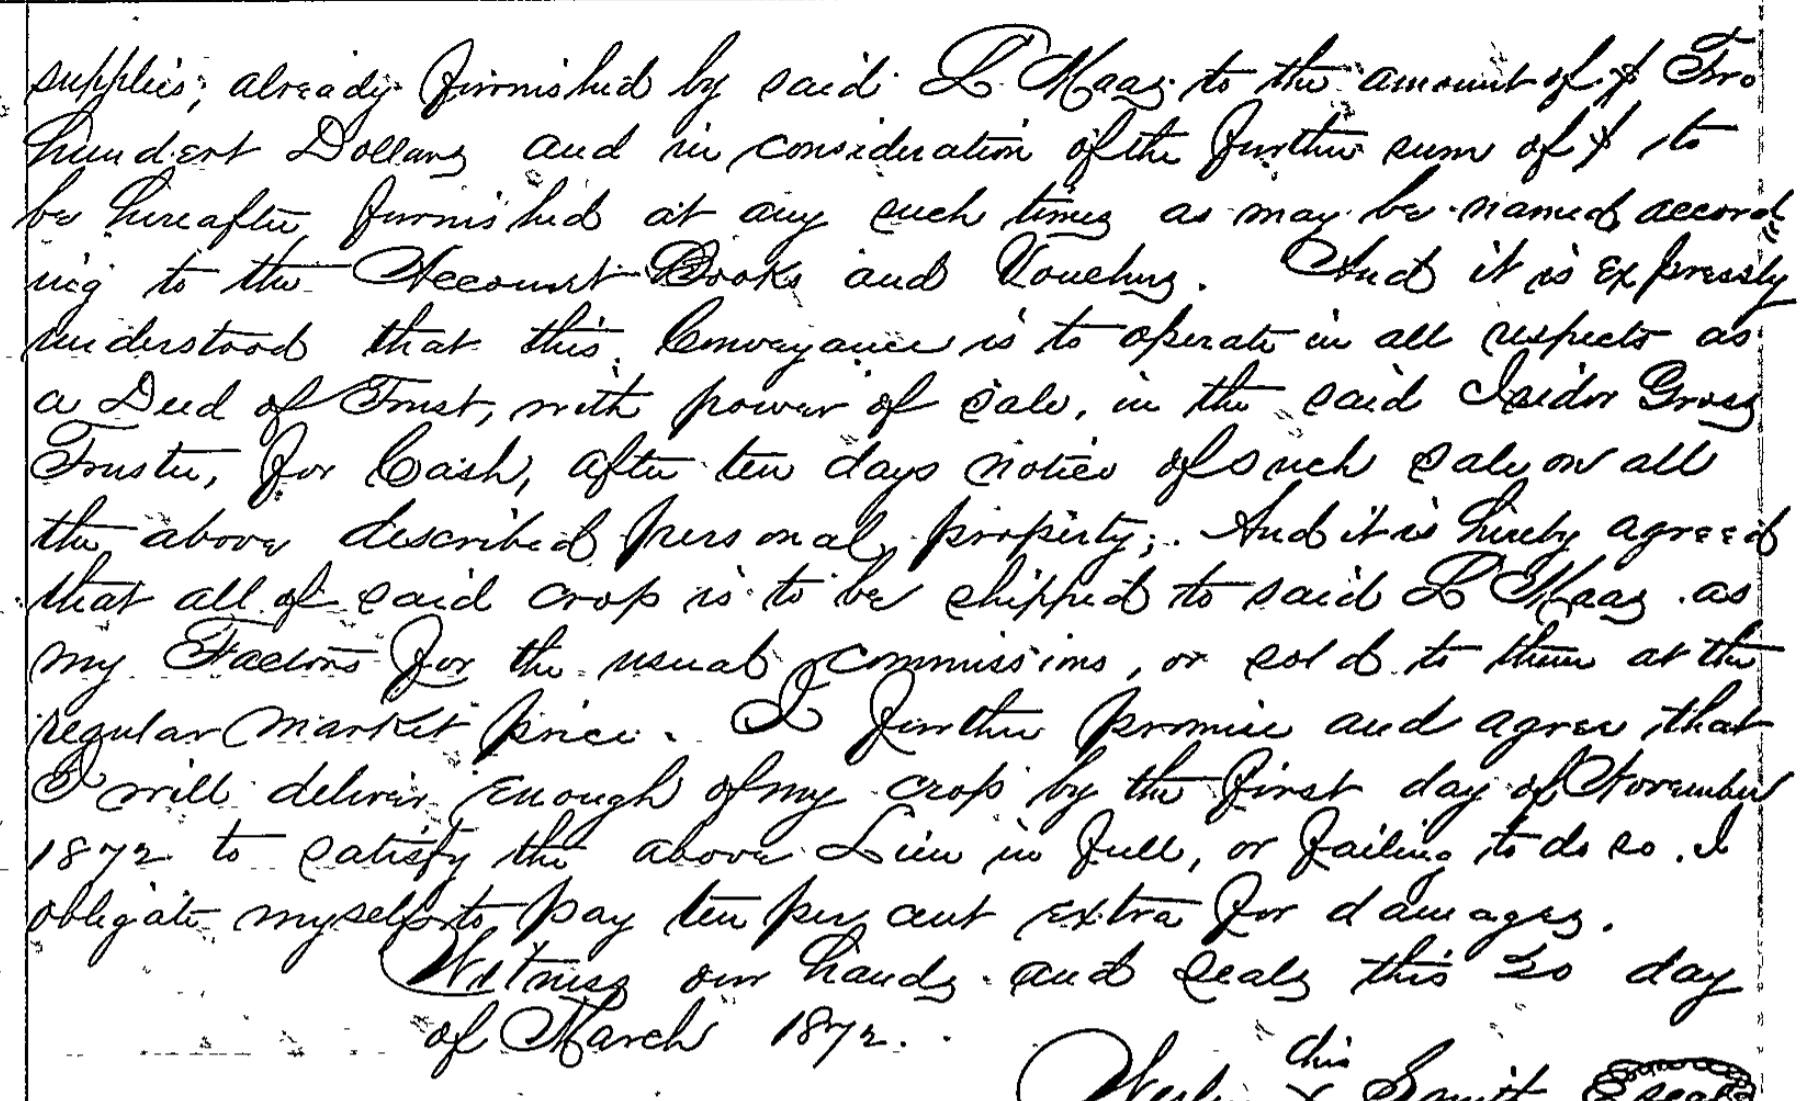 supplies, already furnished by said L. Maas to the amount of $ Two
hundert Dollars and in consideration of the further sum of $ to
be hereafter furnished at any such times as may be named accord
ing to the Account Books and Vouchers. And it is expressly
understood that this Conveyance is to operate in all respects as
a Deed of Trust, with power of sale, in the said Isidor Gross
Trustee, for Cash, after ten days notice of such sale on all
the above described personal property; And it is hereby agreed
that all of said crop is to be shipped to said L Maas as
my Factors for the usual commissions, or sold to them at the
regular market price. I further promise and agree that
I will deliver enough of my crop by the first day of November
1872 to satisfy the above Lien in full, or failing to do so. I
obligate myself to pay ten per cent extra for damages.
Witness our hands and seals this 20 day
of March 1872.
his
Wesley X Smith Seal